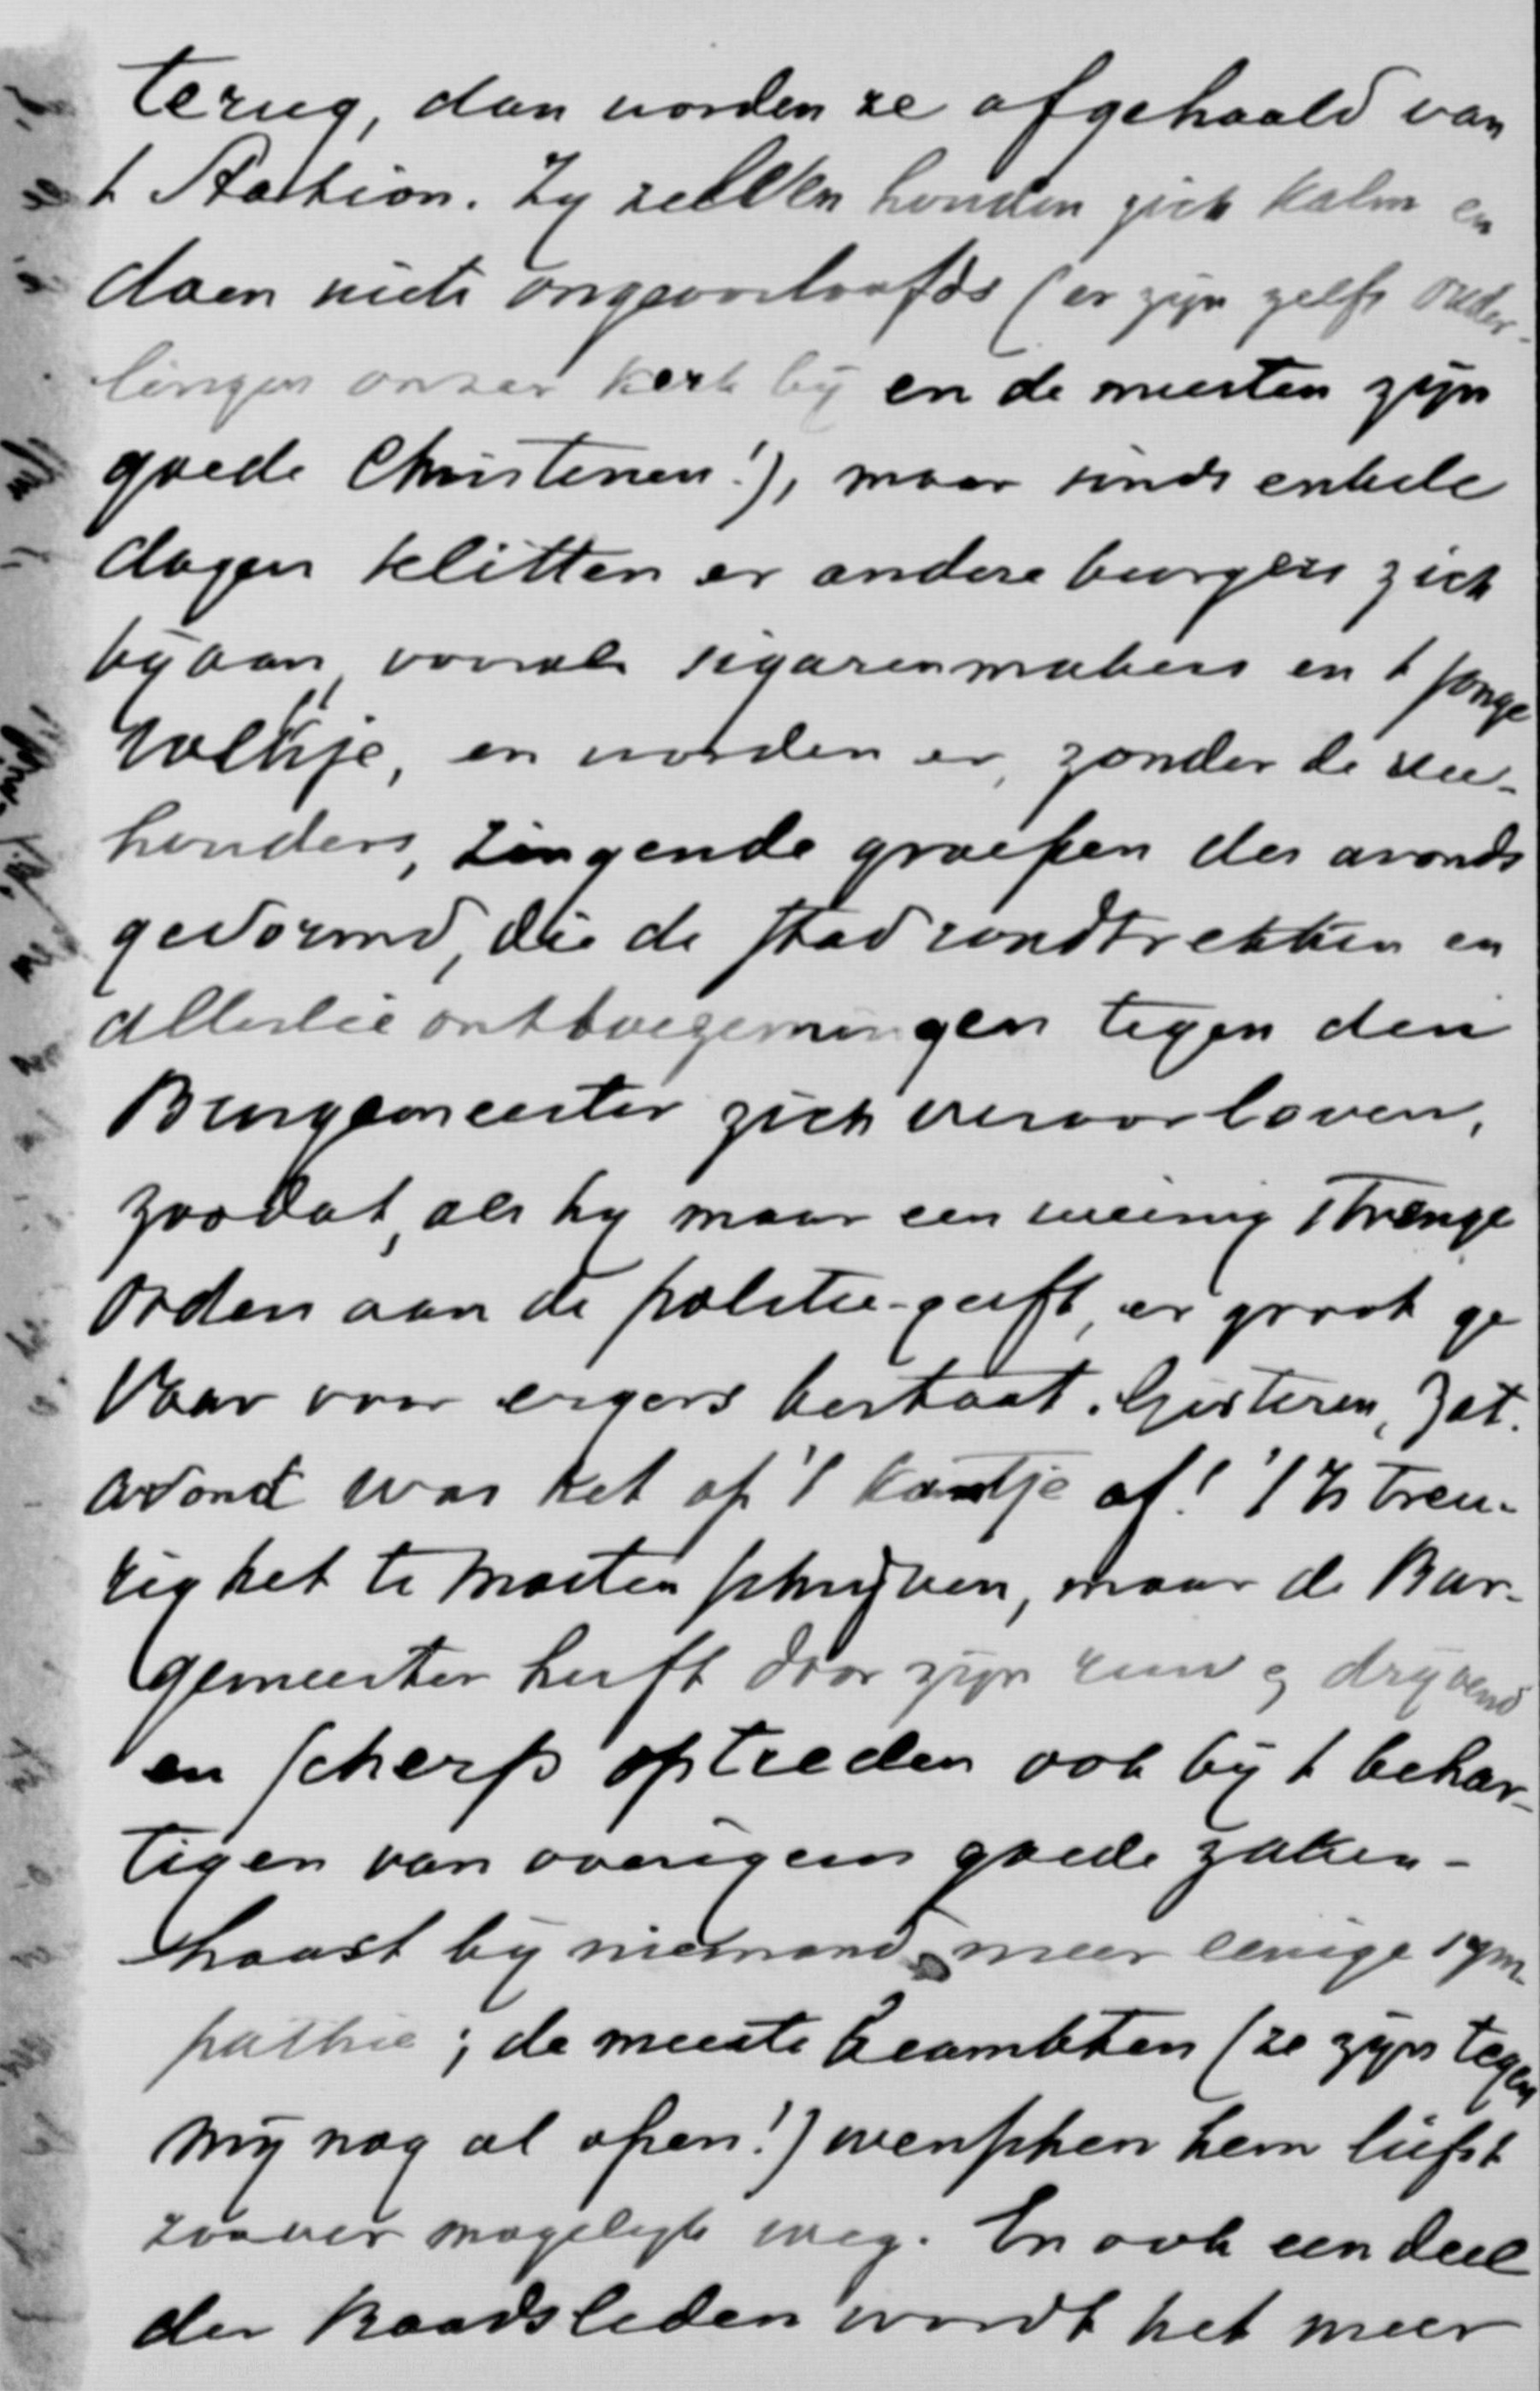 terug, dan worden ze afgehaald van
't Station. Zy zelven houden zich kalm en
doen niets ongeoorloofds (er zyn zelfs ouder-
lingen onzer kerk bij en de meesten zijn
goede Christenen!), maar sinds enkele
dagen klitten er andere burgers zich
bijaan, vooral sigarenmakers en 't jonge
volkje, en worden er, zonder de vee-
houders, zingende groepen des avonds
gevormd, die de stad rondtrekken en
allerlei onttboezemingen tegen den
Burgemeester zich veroorloven,
zoodat, als hy maar een weinig strenge
orders aan de politie geeft, er groot ge
vaar voor ergers bestaat. Gisteren, Zat.
avond was het op 't kantje af! 't Is treu-
rig het te moeten schrijven, maar de Bur-
gemeester heeft door zyn ruw en drijvend
en scherp optreden ook bij 't behar-
tigen van overigens goede zaken -
haast bij niemand meer eenige sym-
pathie; de meeste beambten (ze zyn tegen
mij nog al open!) wenschen hem liefst
zoover mogelyk weg. En ook een deel
der Raadsleden wordt het meer